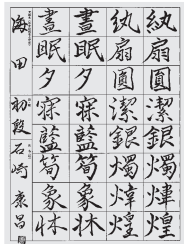 紈扇圓潔銀燭煒煌
紈扇圓潔銀燭煒煌
晝眠夕寐藍筍象牀
晝眠夕寐藍筍象牀
海田 初段 石崎康昌